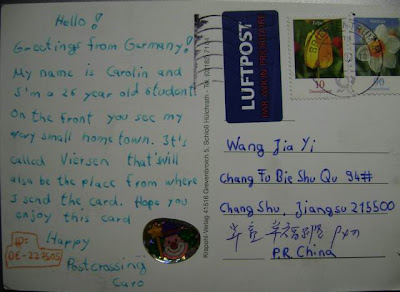 Hello!
Greetings from Germany!
My name is Carolin and
I'm a 26 year old student!
On the front you see my
very small home town. It's
called Viersen that will
also be the place from where
I send the card. Hope you
enjoy this card
ID:
DE-227505
Happy
Postcrossing
Caro
Krapohl-Verlag 41516 Grevenbroich 5, Schloß Hülchrath - Tel.
LUFTPOST
PAR AVION PRIORITAIRE
10
90
Wang Jia Yi
Chang Fu Bie Shu Qu 94#
Chang Shu, Jiangsu 215500
P.R. China